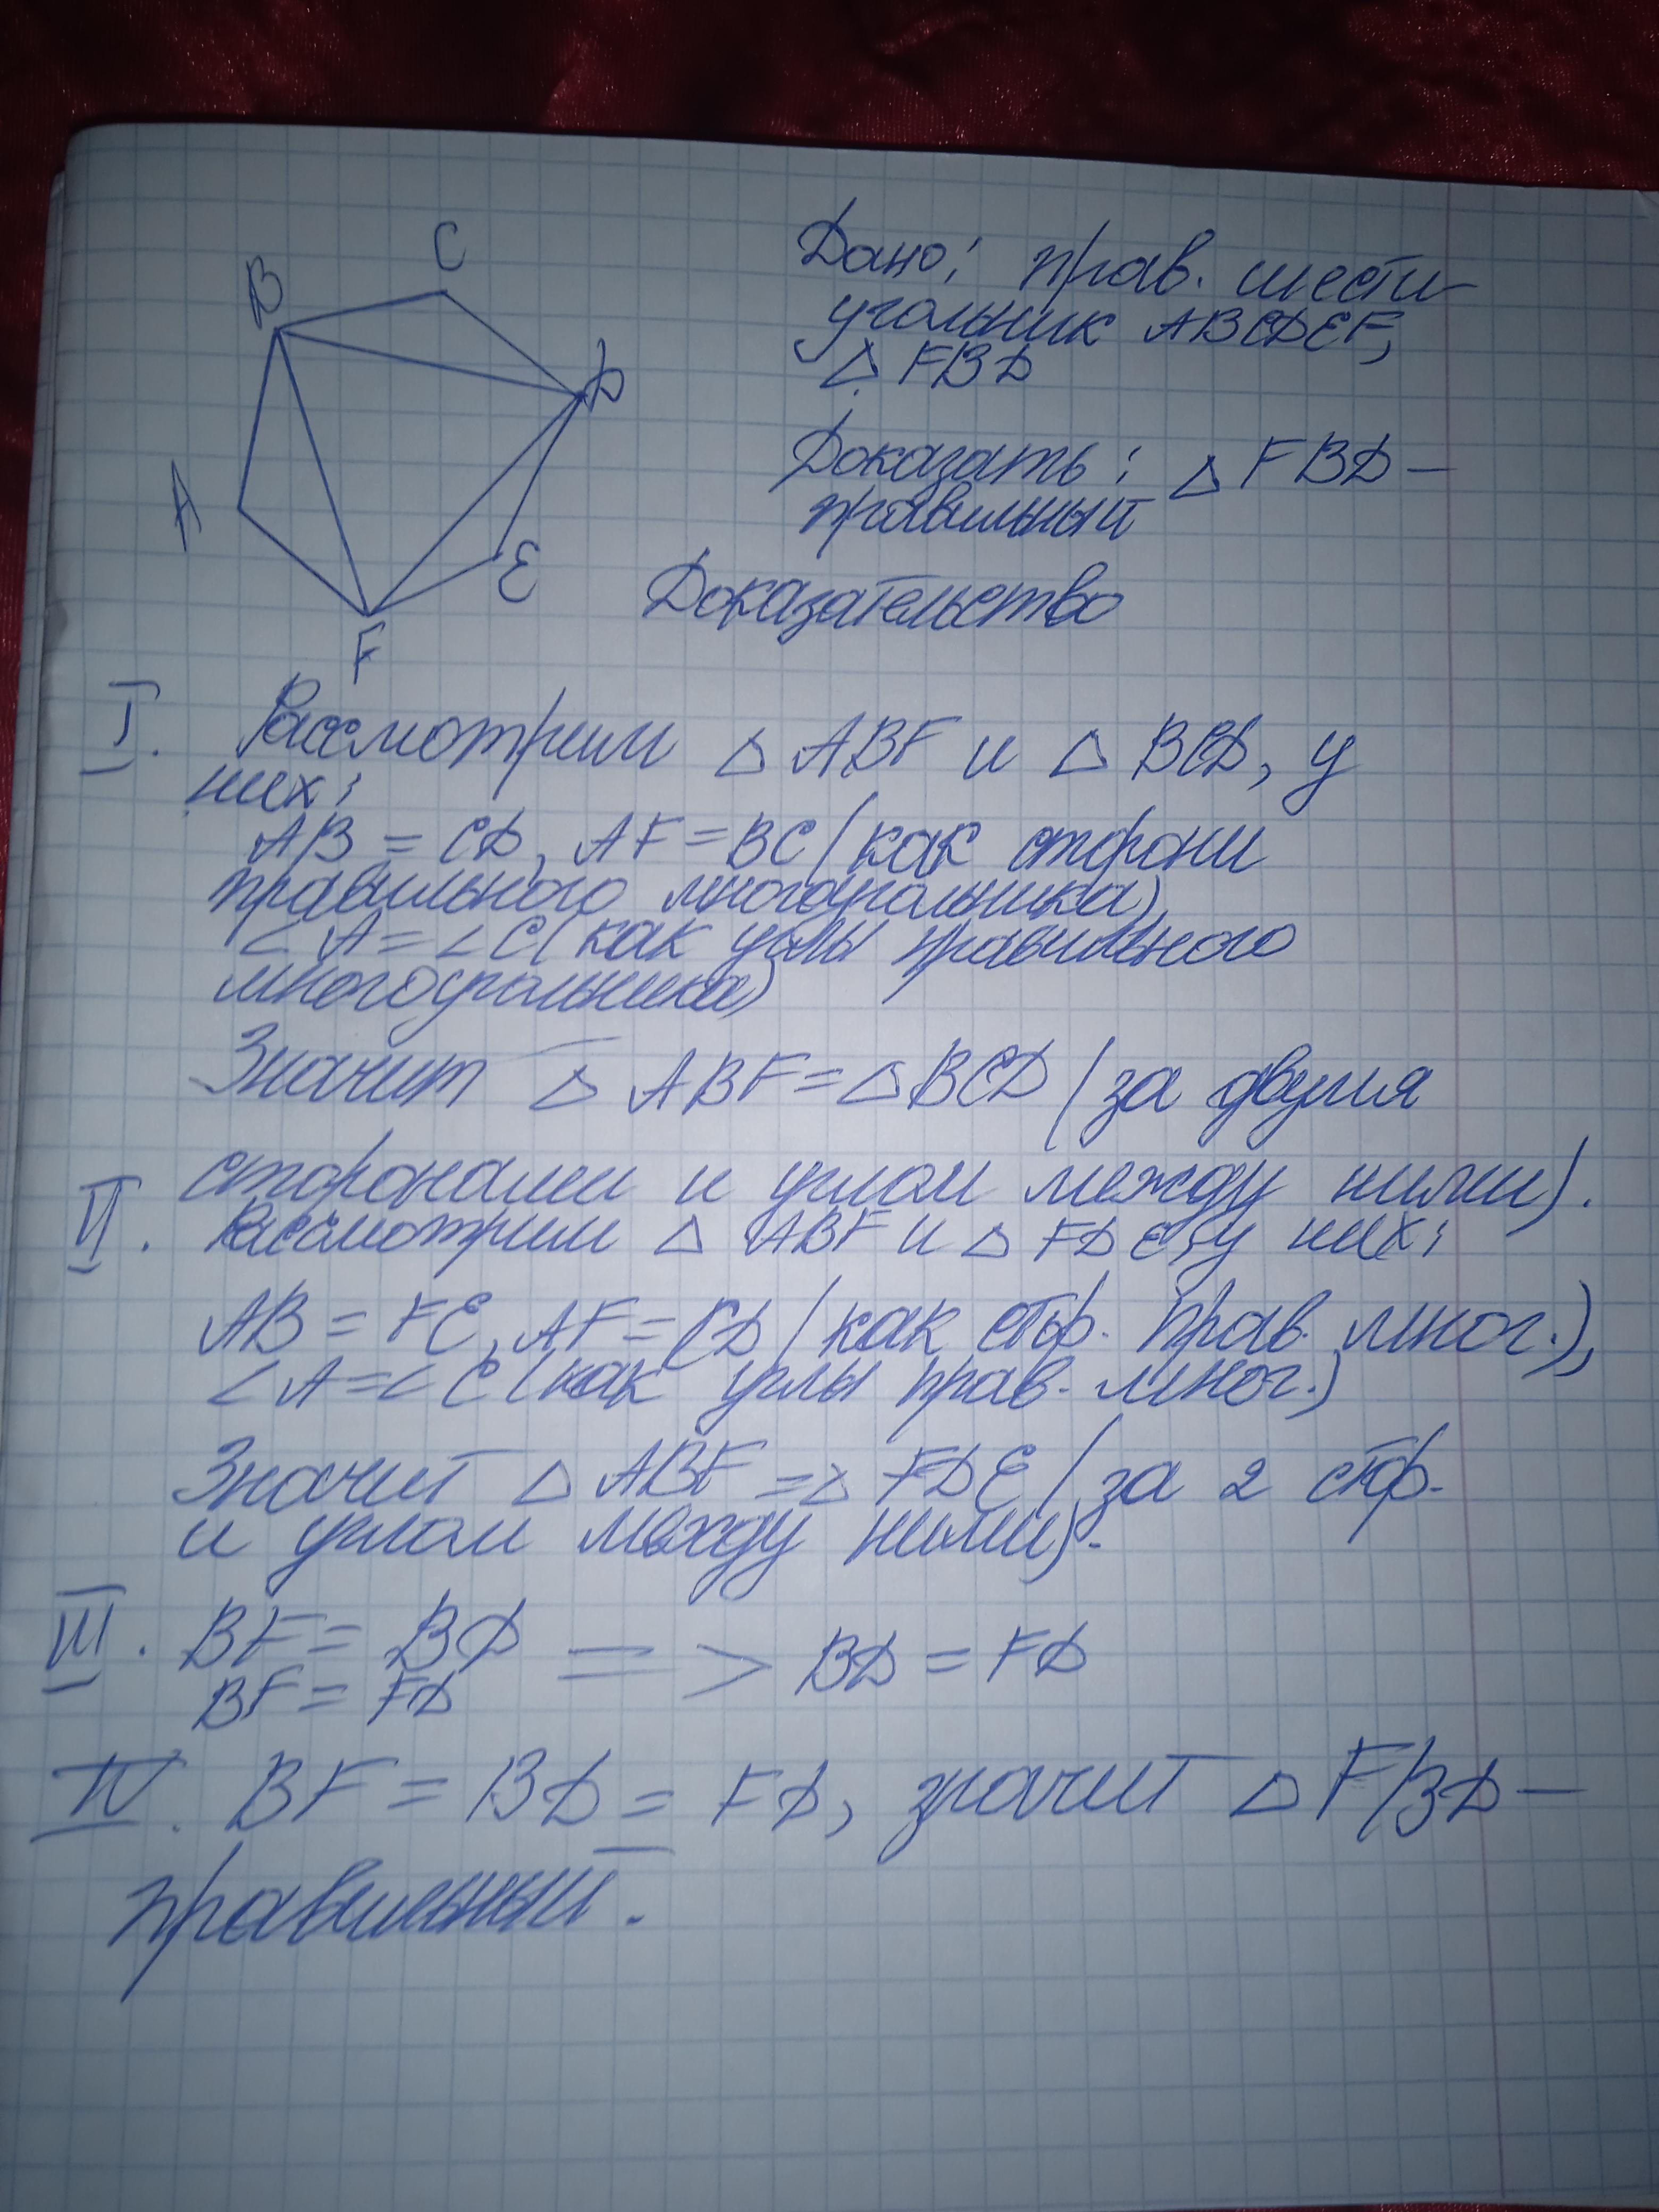 C
B
D
A
E
F
Дано: прав. шести
угольник ABCDEF,
△ FBD
Доказать: △ FBD –
правильный
Доказательство
I. Рассмотрим △ ABF и △ BCD, у
них:
AB = CD, AF = BC (как сторони
правильного многоугольника)
∠A = ∠C (как углы правильного
многоугольника)
Значит △ ABF = △ BCD (за двумя
сторонами и углом между ними).
II. Рассмотрим △ ABF и △ FDE, у них:
AB = FE, AF = CD (как стор. прав. мног.),
∠A = ∠E (как углы прав. мног.)
Значит △ ABF = △ FDE (за 2 стор.
и углом между ними).
III. BF = BD => BD = FD
BF = FD
IV. BF = BD = FD, значит △ FBD –
правильный.